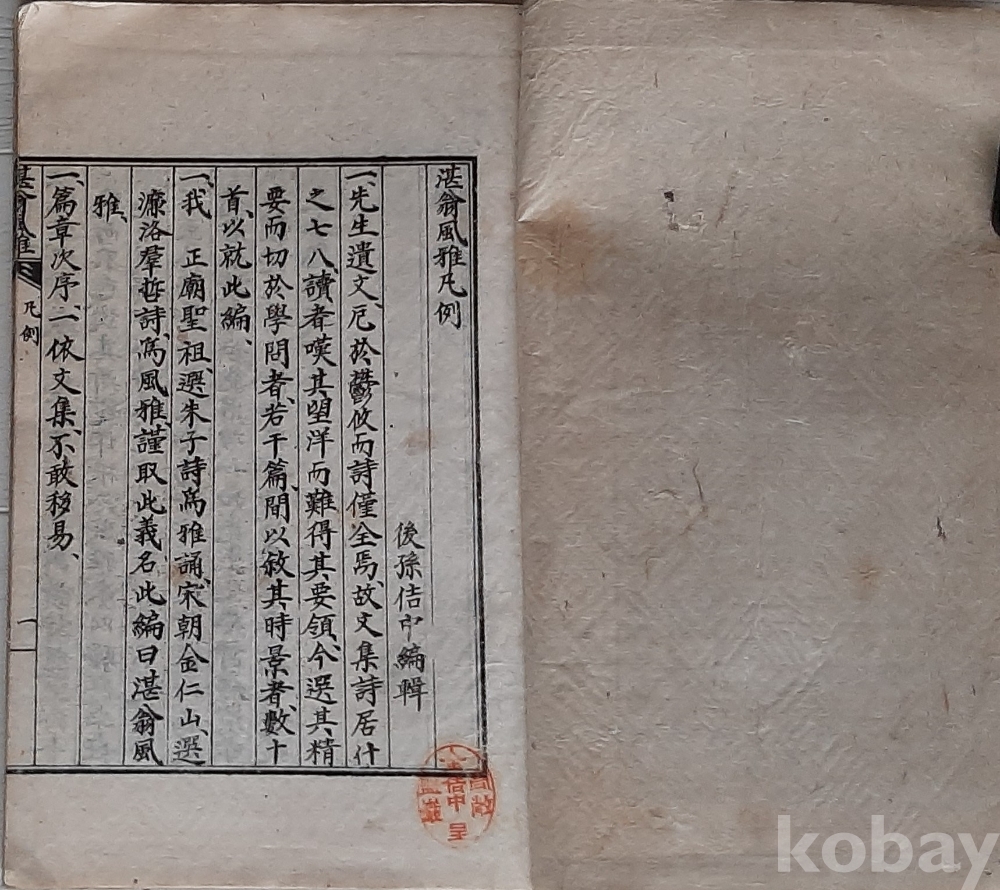 湛翁風雅凡例
後孫佶中編輯
一、先生遺文、厄於鬱攸而詩僅全焉、故文集詩居什
之七八、讀者嘆其望洋而難得其要領、今選其精
要而切於學問者、若干篇、間以敘其時景者、數十
首、以就此編、
一、我 正廟聖祖、選朱子詩爲雅誦、宋朝金仁山、選
濂洛羣哲詩、爲風雅、謹取此義、名此編曰湛翁風
雅、
一、篇章次序、一依文集、不敢移易、
湛翁風雅 凡例 一
佶中 呈
kobay